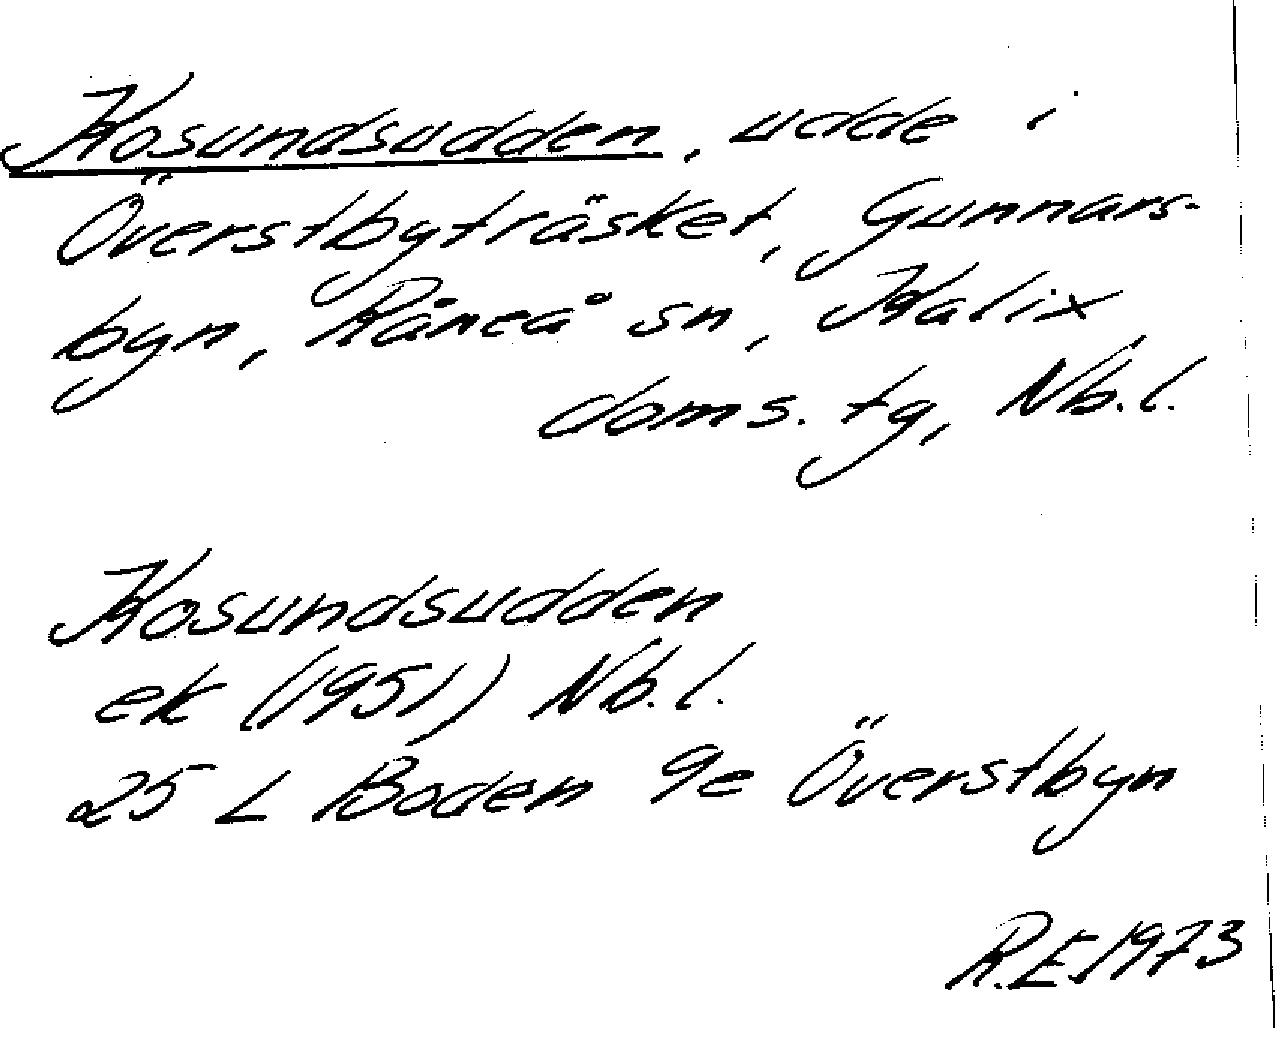 Kosundsudden, udde i
Överstbyträsket, Gunnars-
byn, Råneå sn, Kalix
doms. tg, Nb.l.
Kosundsudden
ek (1951) Nb.l.
25 L Boden 9e Överstbyn
R.E.1973